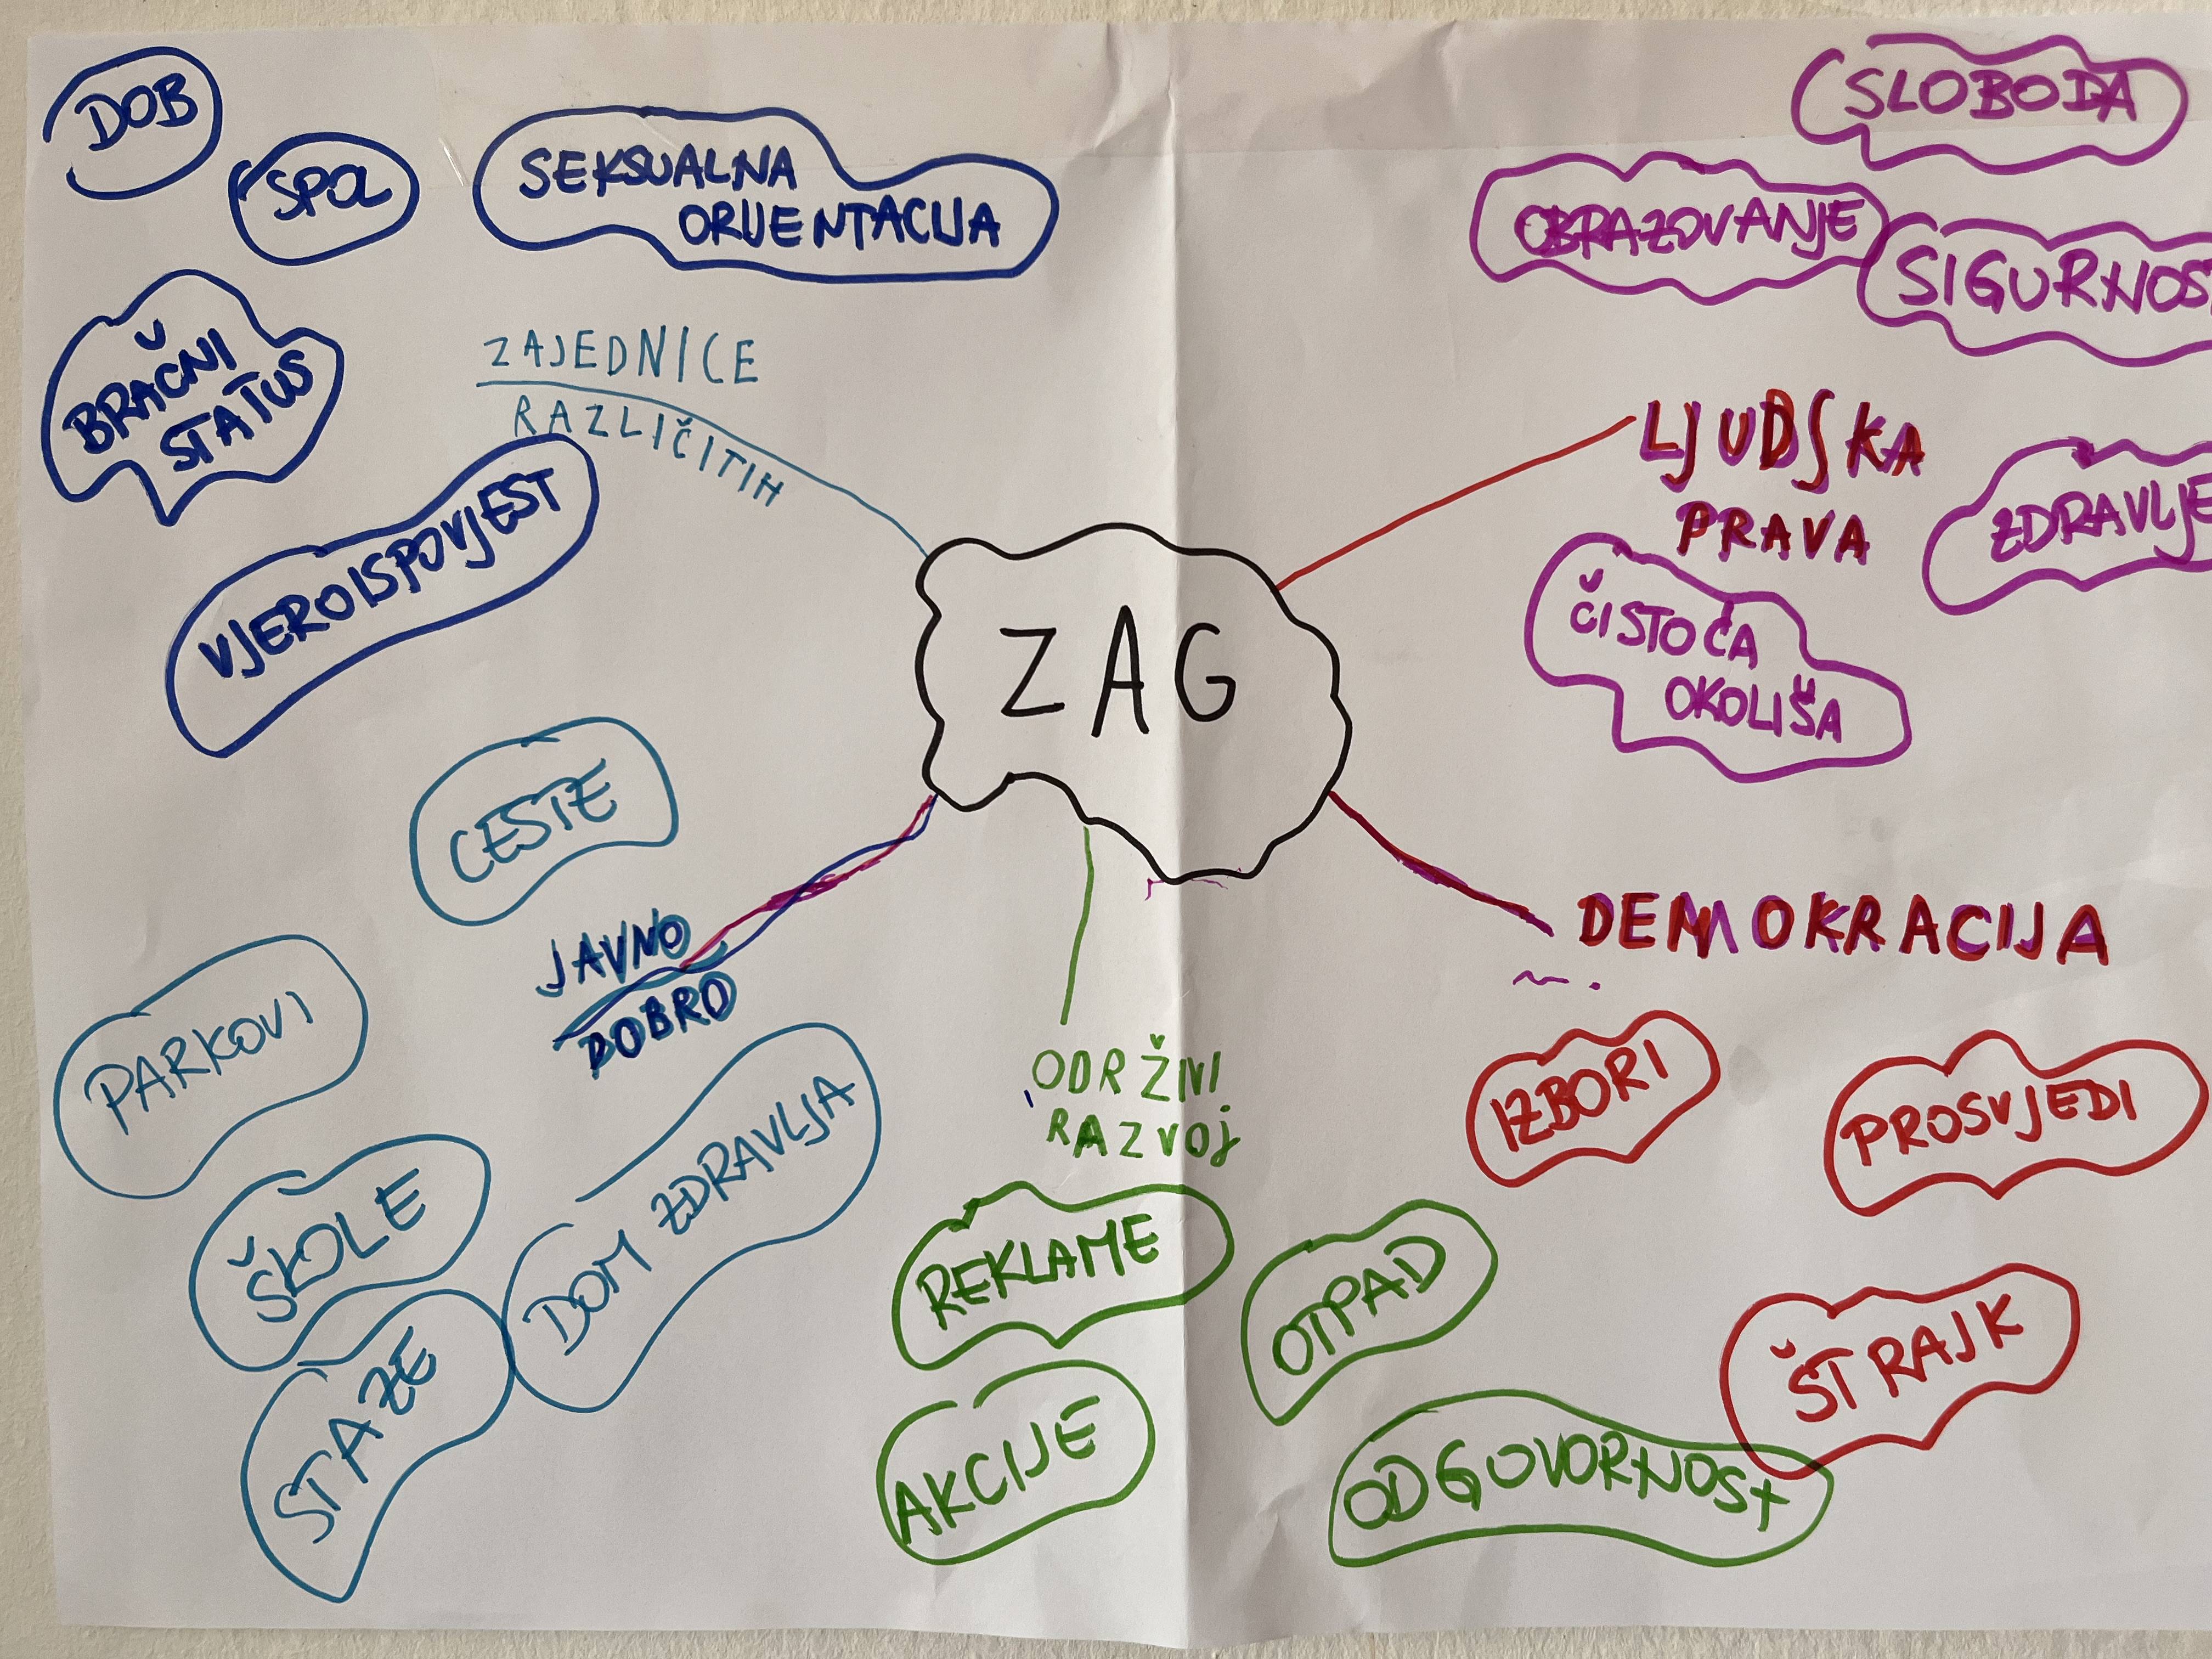 DOB
SPOL
SEKSUALNA
ORIJENTACIJA
BRAČNI
STATUS
VJEROISPOVJEST
ZAJEDNICE
RAZLIČITIH
ZAG
SLOBODA
OBRAZOVANJE
SIGURNOST
LJUDSKA
PRAVA
ZDRAVLJE
ČISTOĆA
OKOLIŠA
CESTE
JAVNO
DOBRO
PARKOVI
ŠKOLE
STAZE
DOM ZDRAVLJA
ODRŽIVI
RAZVOJ
REKLAME
AKCIJE
OTPAD
ODGOVORNOST
DEMOKRACIJA
IZBORI
PROSVJEDI
ŠTRAJK